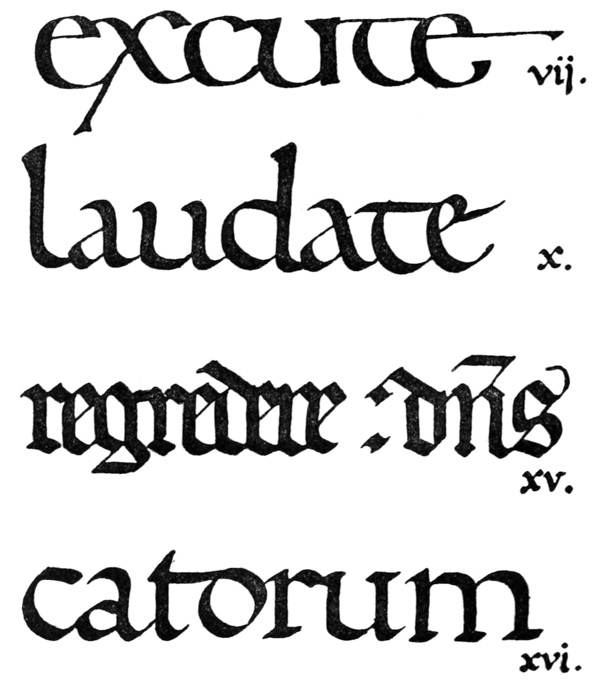 excute vij.
laudate x.
regredere :dn̄s xv.
catorum xvi.